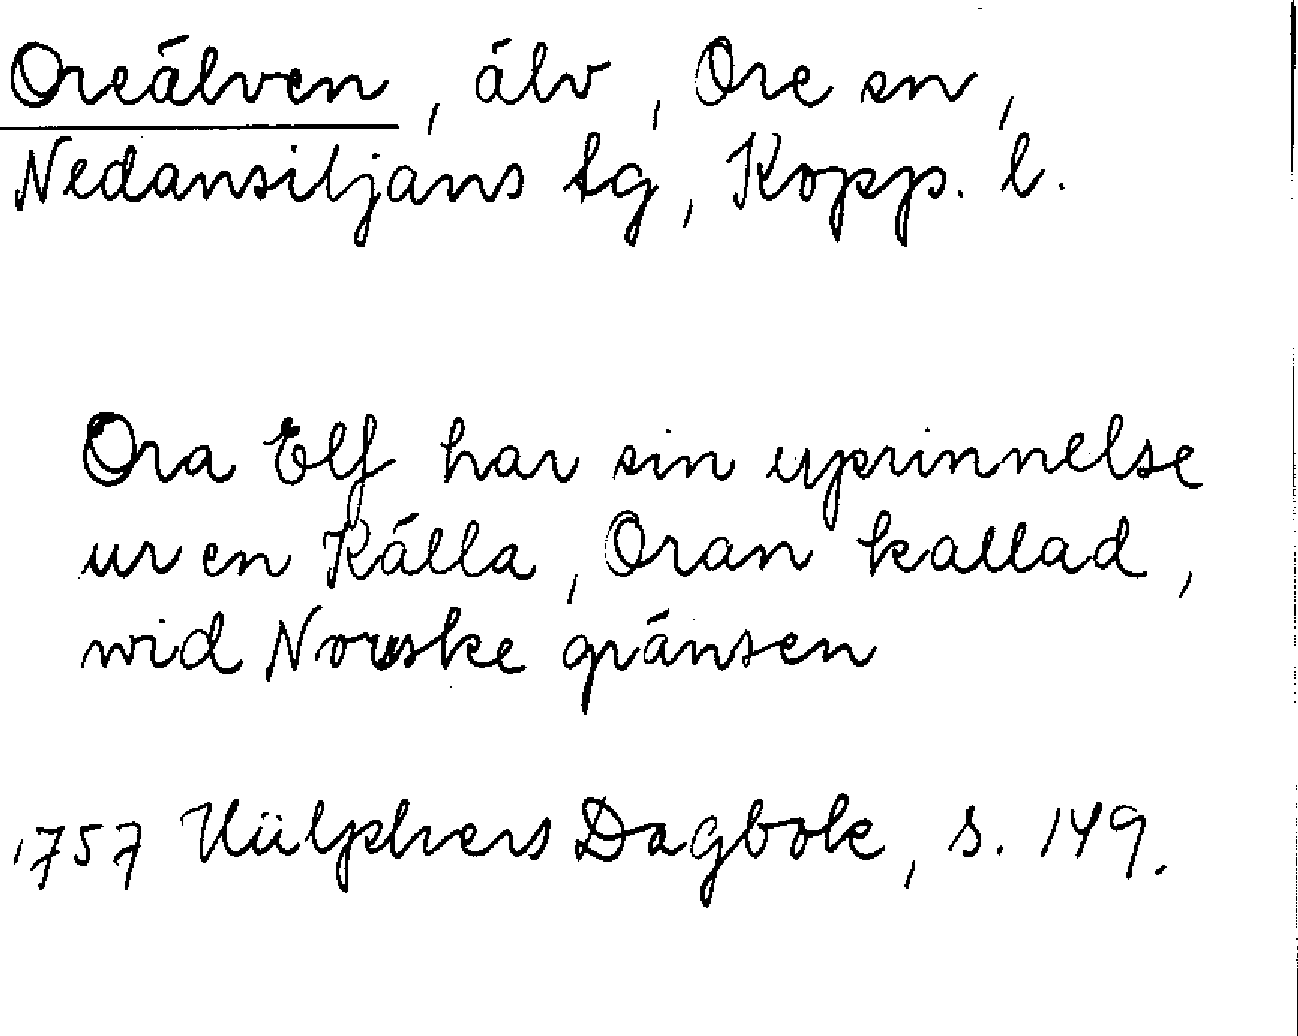 Oreälven, älv, Ore sn,
Nedansiljans tg, Kopp. l.
Ora Elf har sin uprinnelse
ur en Källa, Oran kallad,
wid Norske gränsen
1757 Hülphers Dagbok, s. 149.